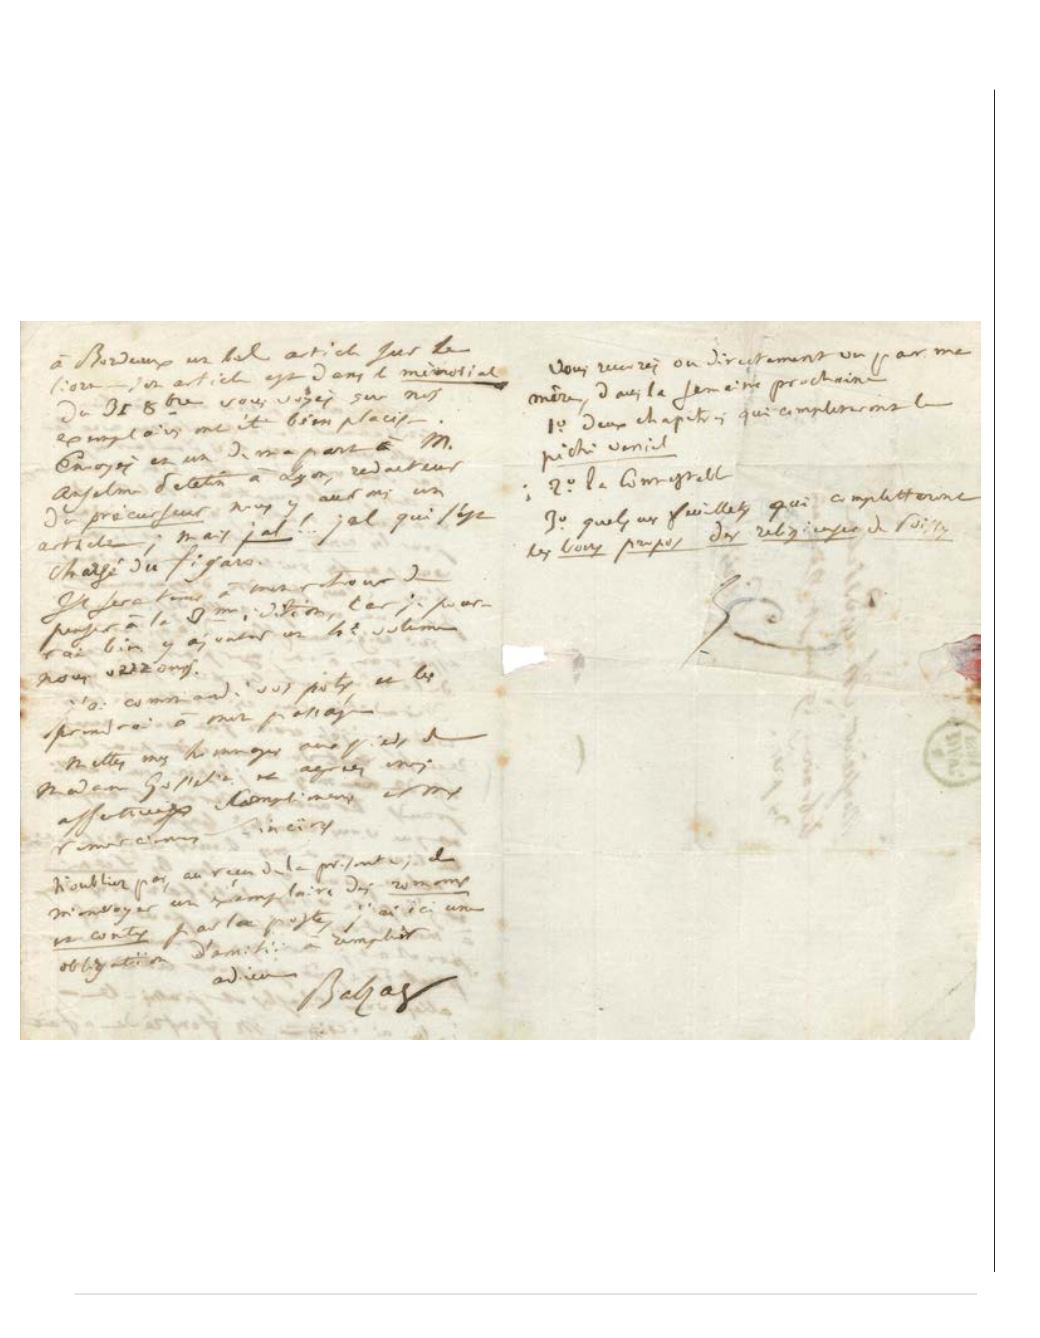 à Bordeaux un bel article sur le
livre — son article est dans le mémorial
du 31 8bre vous voyez que nos
exemplaires ont été bien placés.
Envoyez en un de ma part à M.
Anselme Petetin à Lyon, rédacteur
du précurseur nous y aurons un
article; mais jal!.. jal qui s'est
chargé du figaro.
Il sera tems à mon retour de
penser à la 3me édition, car je pour-
rai bien y ajouter un 4e volume
nous verrons.
j'ai commandé vos pots, et les
prendrai à mon passage
Mettez mes hommages aux pieds de
Madame Gosselin, et agréez mes
affectueux compliments et mes
remerciemens sincères
N'oubliez pas, au reçu de la présente, de
m'envoyer un exemplaire des romans
et contes par la poste, j'ai ici une
obligation d'amitié à remplir
adieu
Balzac
Vous recevrez ou directement ou par ma
mère, dans la semaine prochaine
1º deux chapitres qui completeront le
péché veniel
; 2º la Connestable
3º quelques feuillets qui completteront
les bons propos des religieuses de Poissy